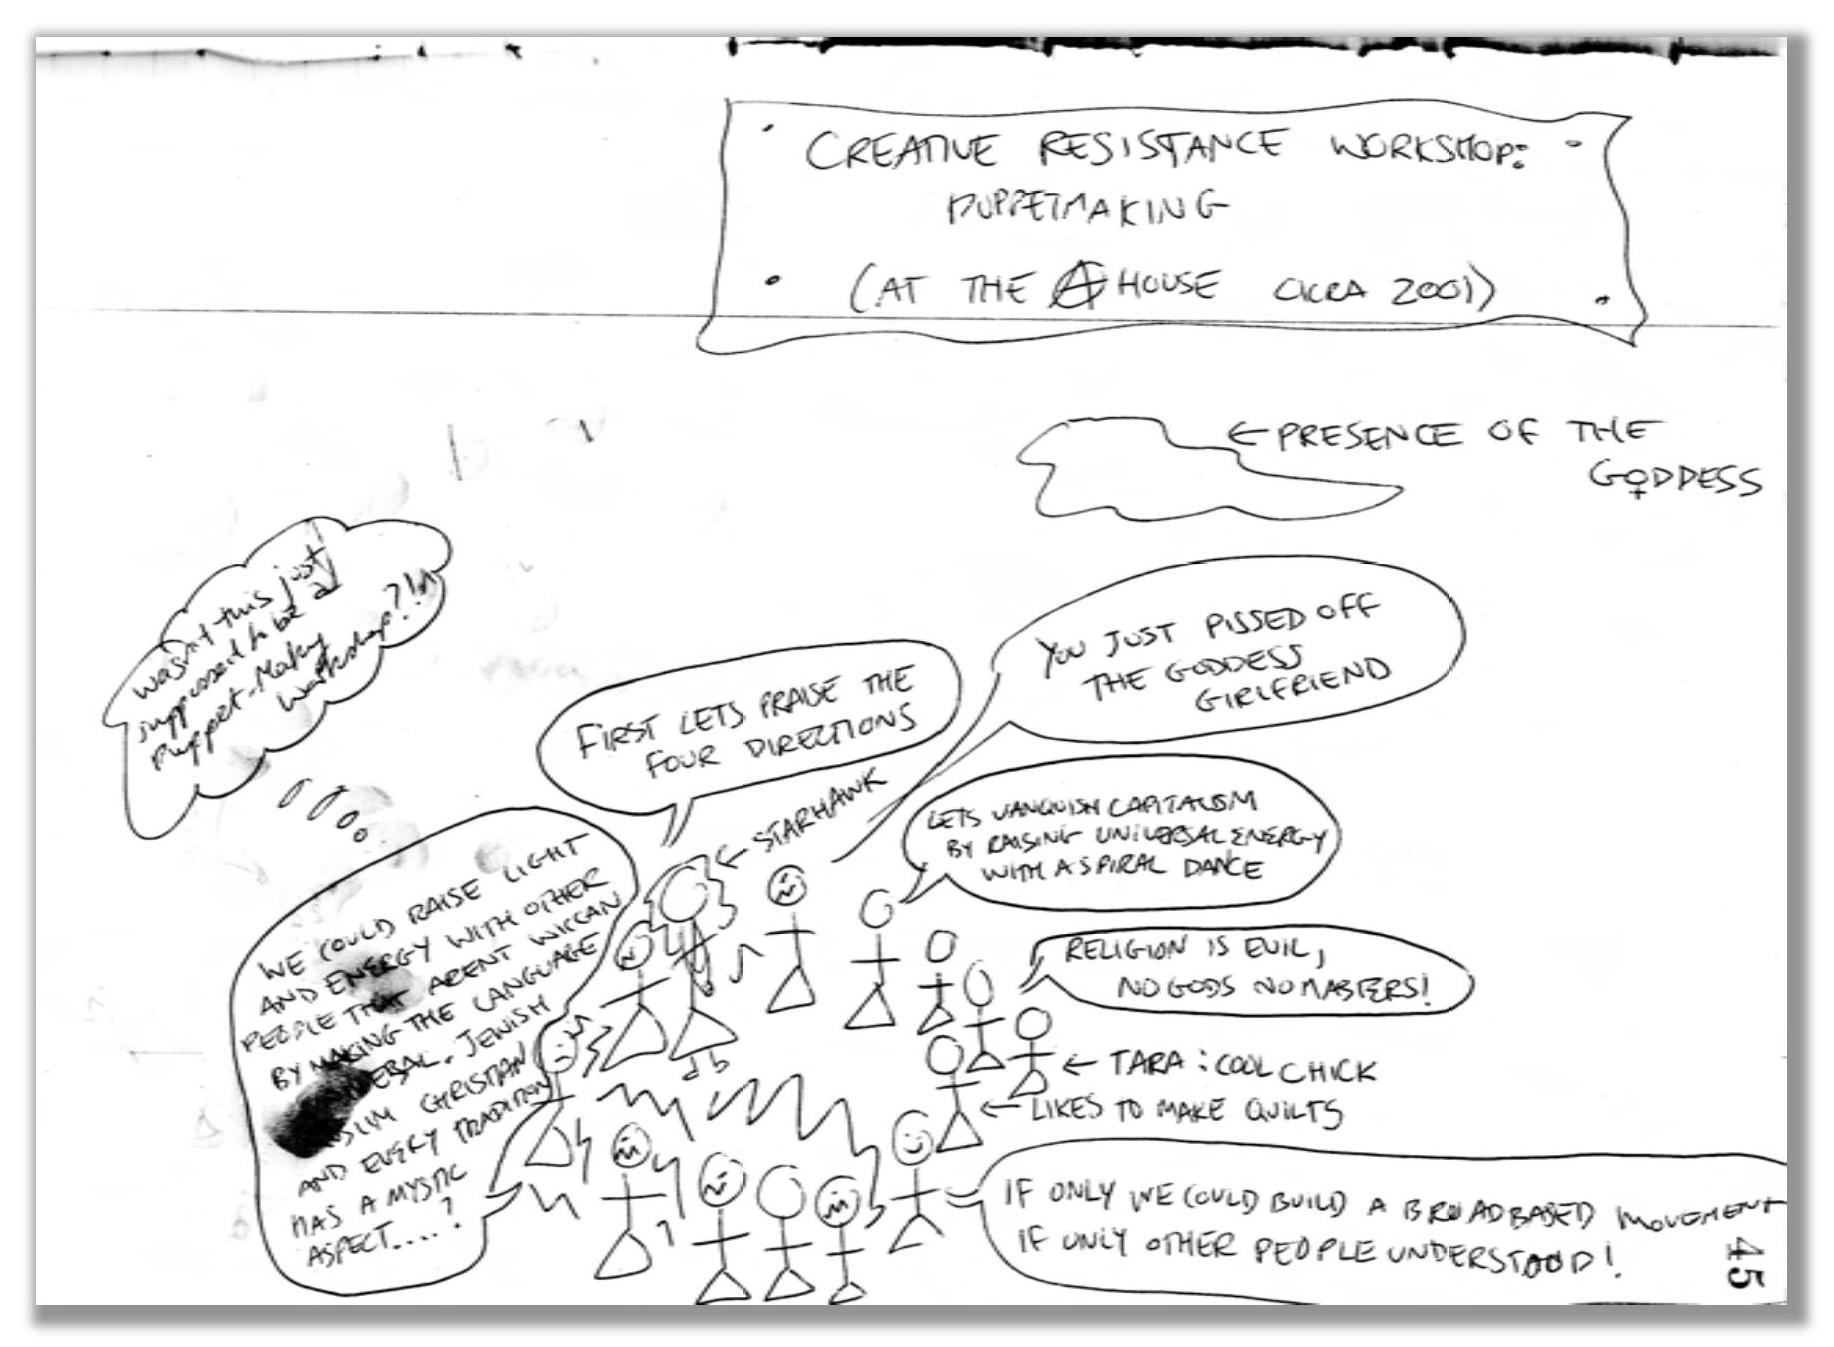 CREATIVE RESISTANCE WORKSHOP:
PUPPETMAKING
(AT THE Ⓐ HOUSE CICRA 2001)
← PRESENCE OF THE
GODDESS
wasn't this just
supposed to be a
puppet-Making
workshop?!!
FIRST LETS PRAISE THE
FOUR DIRECTIONS
YOU JUST PISSED OFF
THE GODDESS
GIRLFRIEND
← STARHAWK
LETS VANQUISH CAPITALISM
BY RAISING UNIVERSAL ENERGY
WITH A SPIRAL DANCE
WE COULD RAISE LIGHT
AND ENERGY WITH OTHER
PEOPLE THAT ARENT WICCAN
BY MAKING THE LANGUAGE
JEWISH
CHRISTIAN
AND EVERY TRADITION
HAS A MYSTIC
ASPECT....?
RELIGION IS EVIL,
NO GODS NO MASTERS!
← TARA : COOL CHICK
← LIKES TO MAKE QUILTS
IF ONLY WE COULD BUILD A BROADBASED MOVEMENT
IF ONLY OTHER PEOPLE UNDERSTOOD!
45